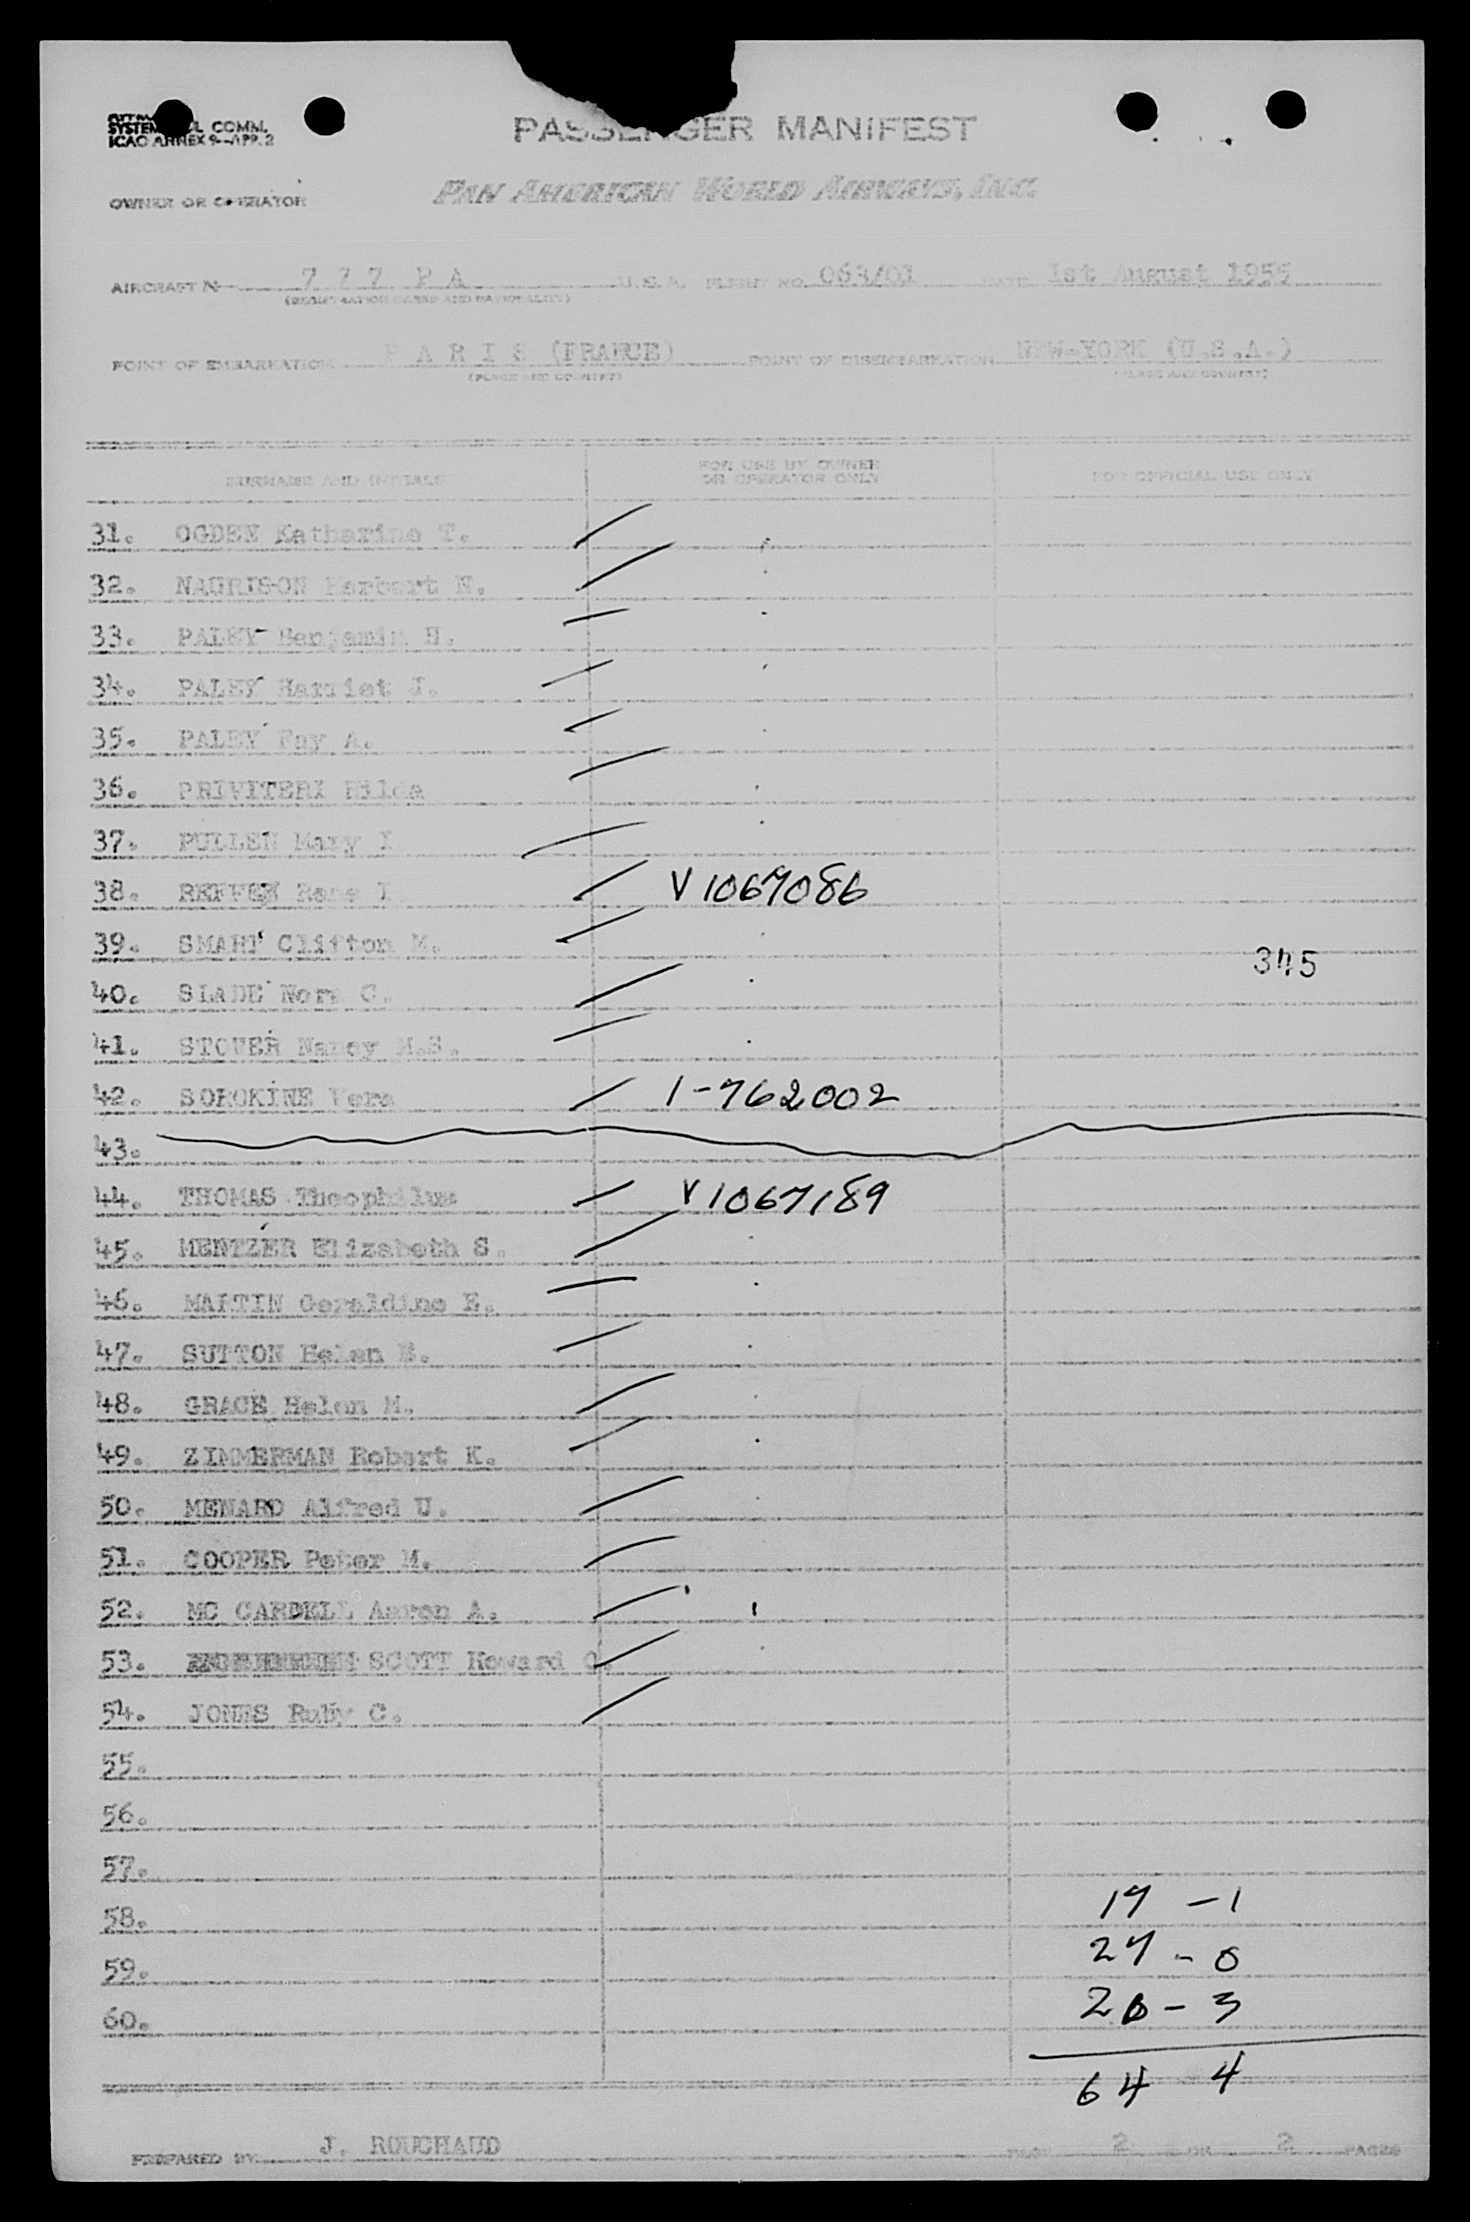 SYSTEM COMM.
ICAO ANNEX 9-APP. 2
PASSENGER MANIFEST
OWNER OR OPERATOR PAN AMERICAN WORLD AIRWAYS, INC.
AIRCRAFT N 777 PA U.S.A. FLIGHT NO. 063/01 DATE 1st August 1955
(REGISTRATION MARKS AND NATIONALITY)
POINT OF EMBARKATION P A R I S (FRANCE) POINT OF DISEMBARKATION NEW-YORK (U.S.A.)
(PLACE AND COUNTRY) (PLACE AND COUNTRY)
SURNAME AND INITIALS FOR USE BY OWNER OR OPERATOR ONLY FOR OFFICIAL USE ONLY
31. OGDEN Katharine T.
32. NAURISON Herbert N.
33. PALEY Benjamin H.
34. PALEY Harriet J.
35. PALEY Fay A.
36. PRIVITERI Hilda
37. PULLEN Mary I
38. V1067086
39. SMART Clifton M.
345
40. SLADE Nora C.
41. STOVER Nancy M.S.
42. SOROKINE Vera 1-762002
43.
44. THOMAS Theophilus V1067189
45. MENTZER Elizabeth S.
46. MARTIN Geraldine E.
47. SUTTON Helen B.
48. GRACE Helen M.
49. ZIMMERMAN Robert K.
50. MENARD Alfred U.
51. COOPER Peter M.
52. MC CARDELL Aaron A.
53. SCOTT Howard O.
54. JONES Ruby C.
55.
56.
57.
58. 17 - 1
59. 27 - 0
60. 20 - 3
64 4
PREPARED BY J. ROUCHAUD PAGE 2 OR 2 PAGES